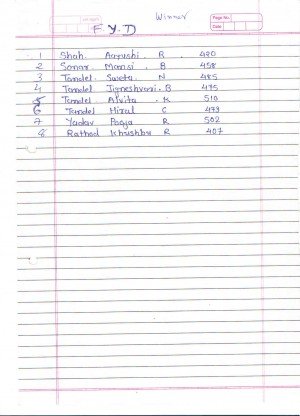 Winner
Page No.
Date
F.Y.D
1 Shah. Aarushi. R. 420
2 Sonar Mansi. B 458
3 Tandel Sweta. N 485
4 Tandel Jigneshvari. B 475
5 Tandel Alvita. K 510
6 Tandel Hiral C 473
7 Yadav Pooja R 502
8 Rathod Khushbu R 407